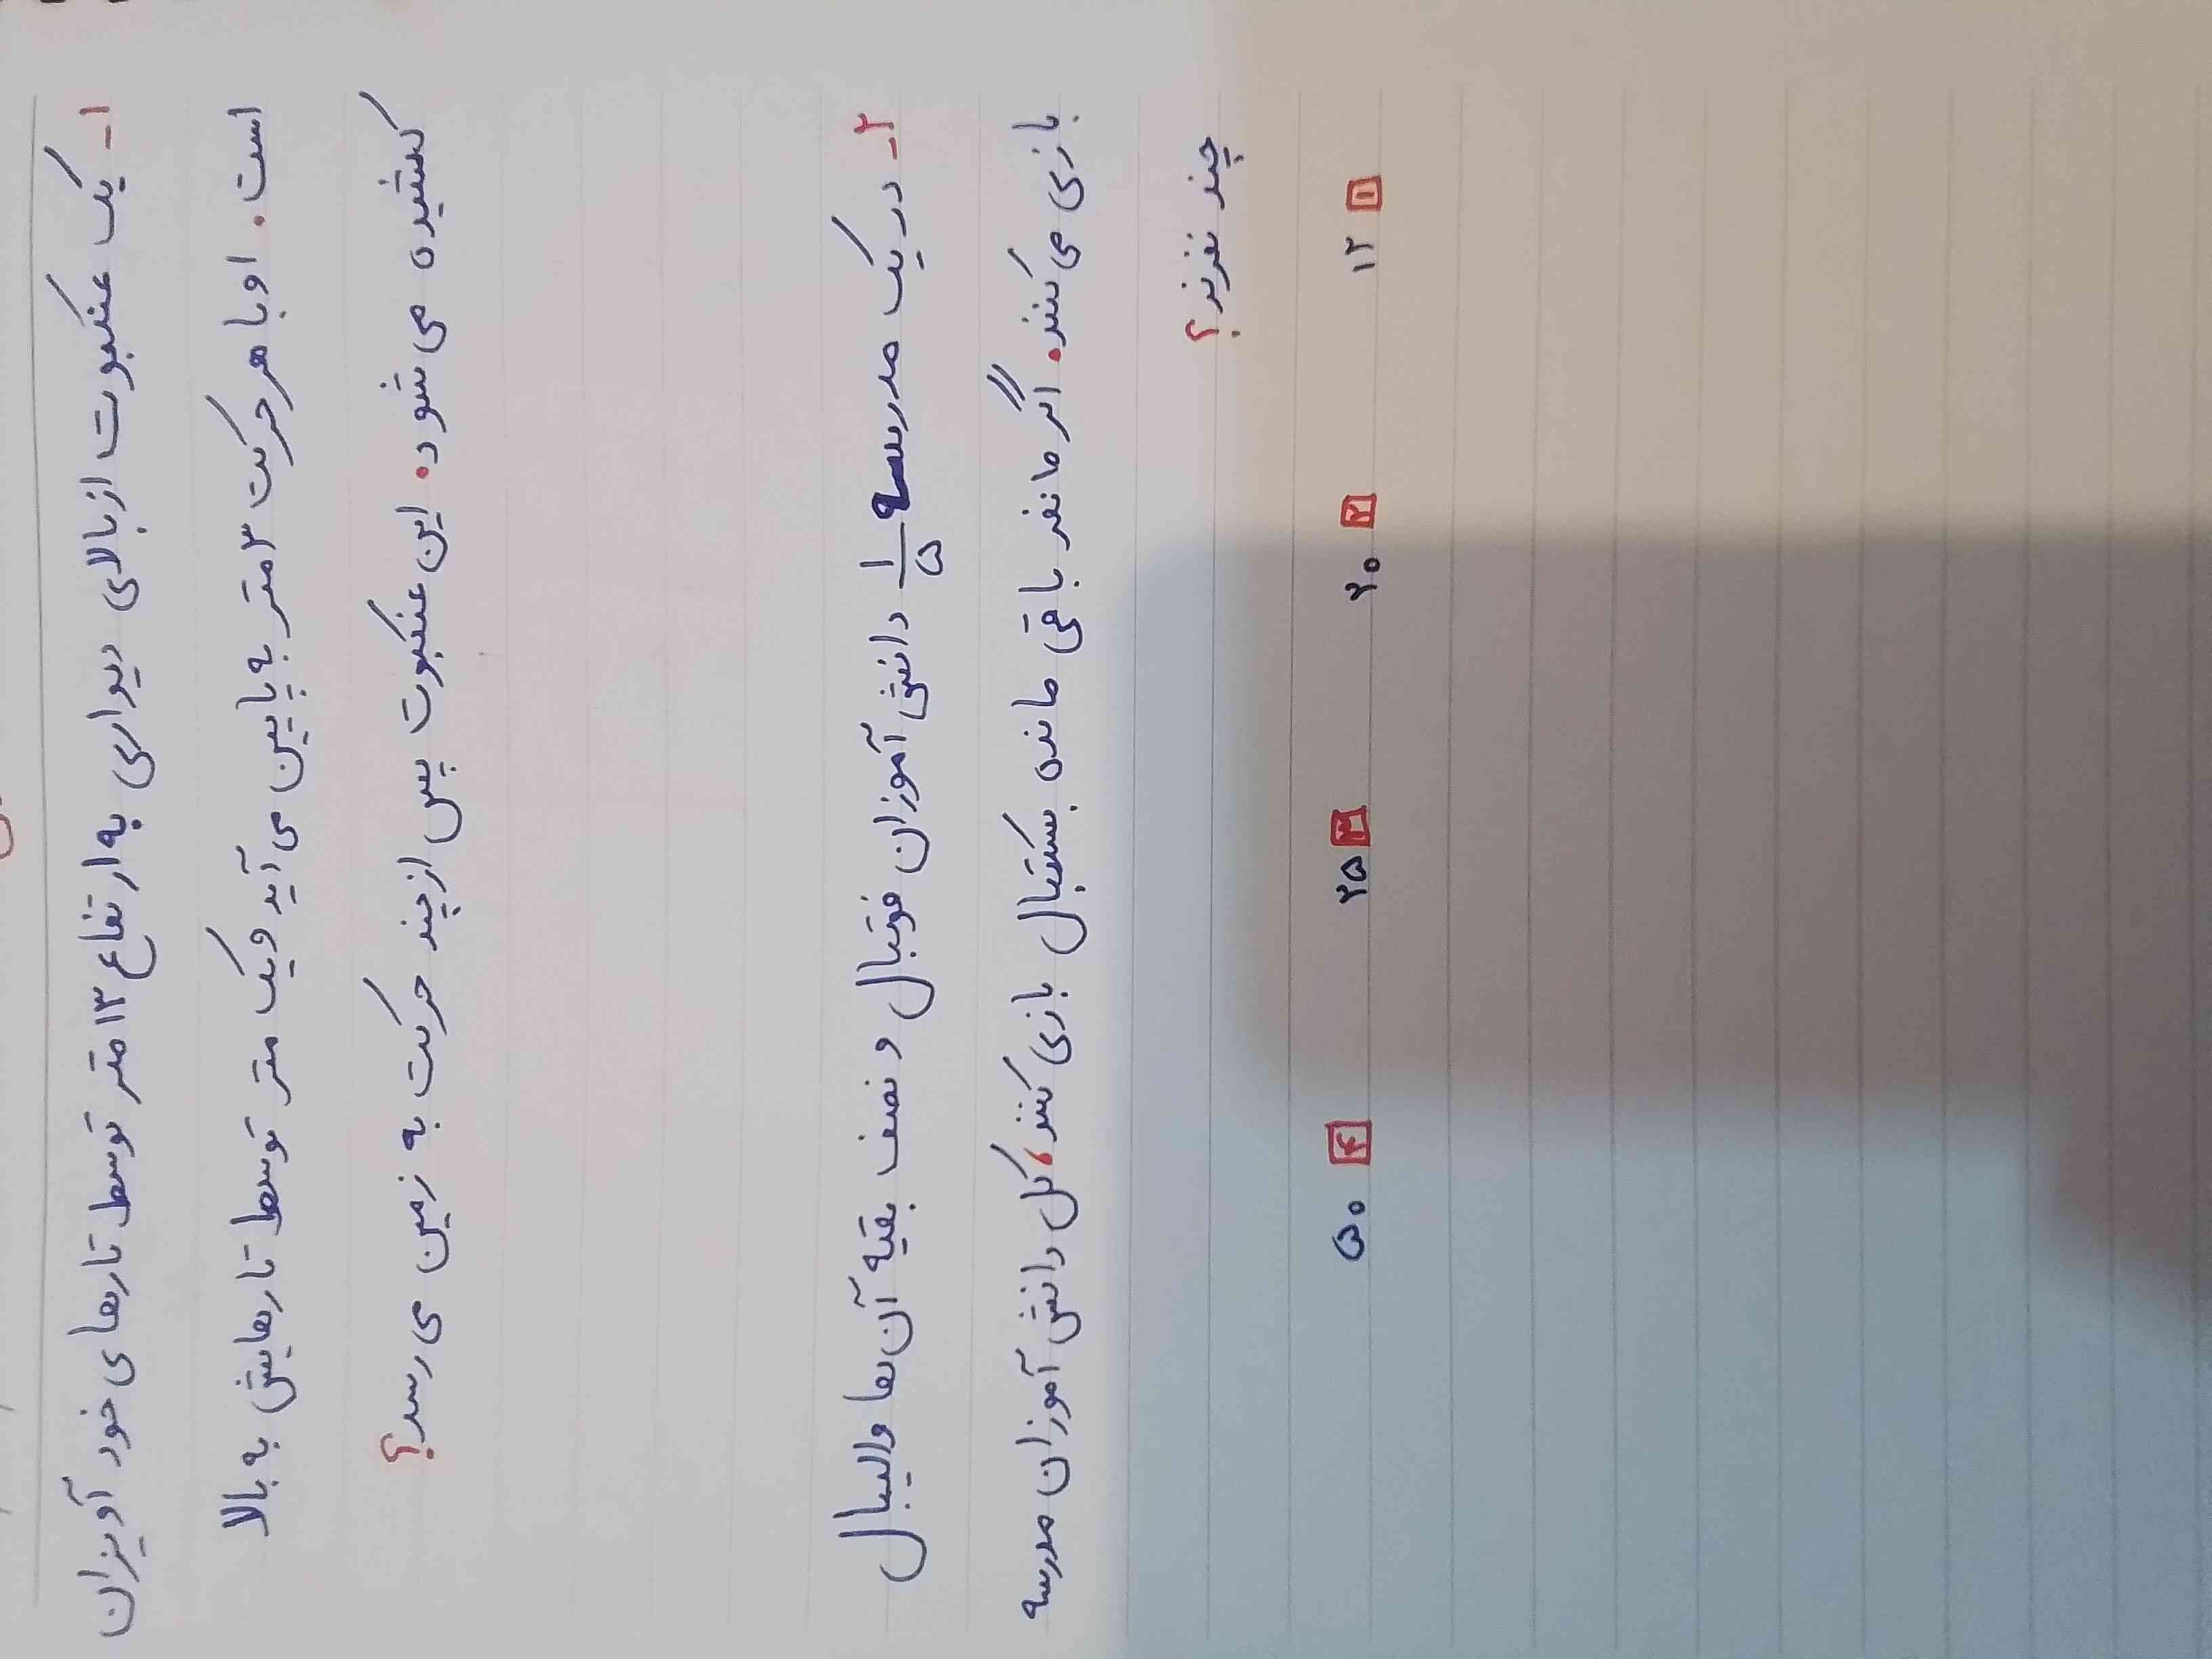 ۱- یک عنکبوت از بالای دیواری به ارتفاع ۱۳ متر توسط تارهای خود آویزان
است. او با هر حرکت ۳ متر به پایین می آید و یک متر توسط تارهایش به بالا
کشیده می شود. این عنکبوت پس از چند حرکت به زمین می رسد؟
۲- در یک مدرسه ۱/۵ دانش آموزان فوتبال و نصف بقیه آن ها والیبال
بازی می کنند. اگر ۱۰ نفر باقی مانده بسکتبال بازی کنند، کل دانش آموزان مدرسه
چند نفرند؟
۱ ۱۲ ۲ ۲۰ ۳ ۲۵ ۴ ۵۰